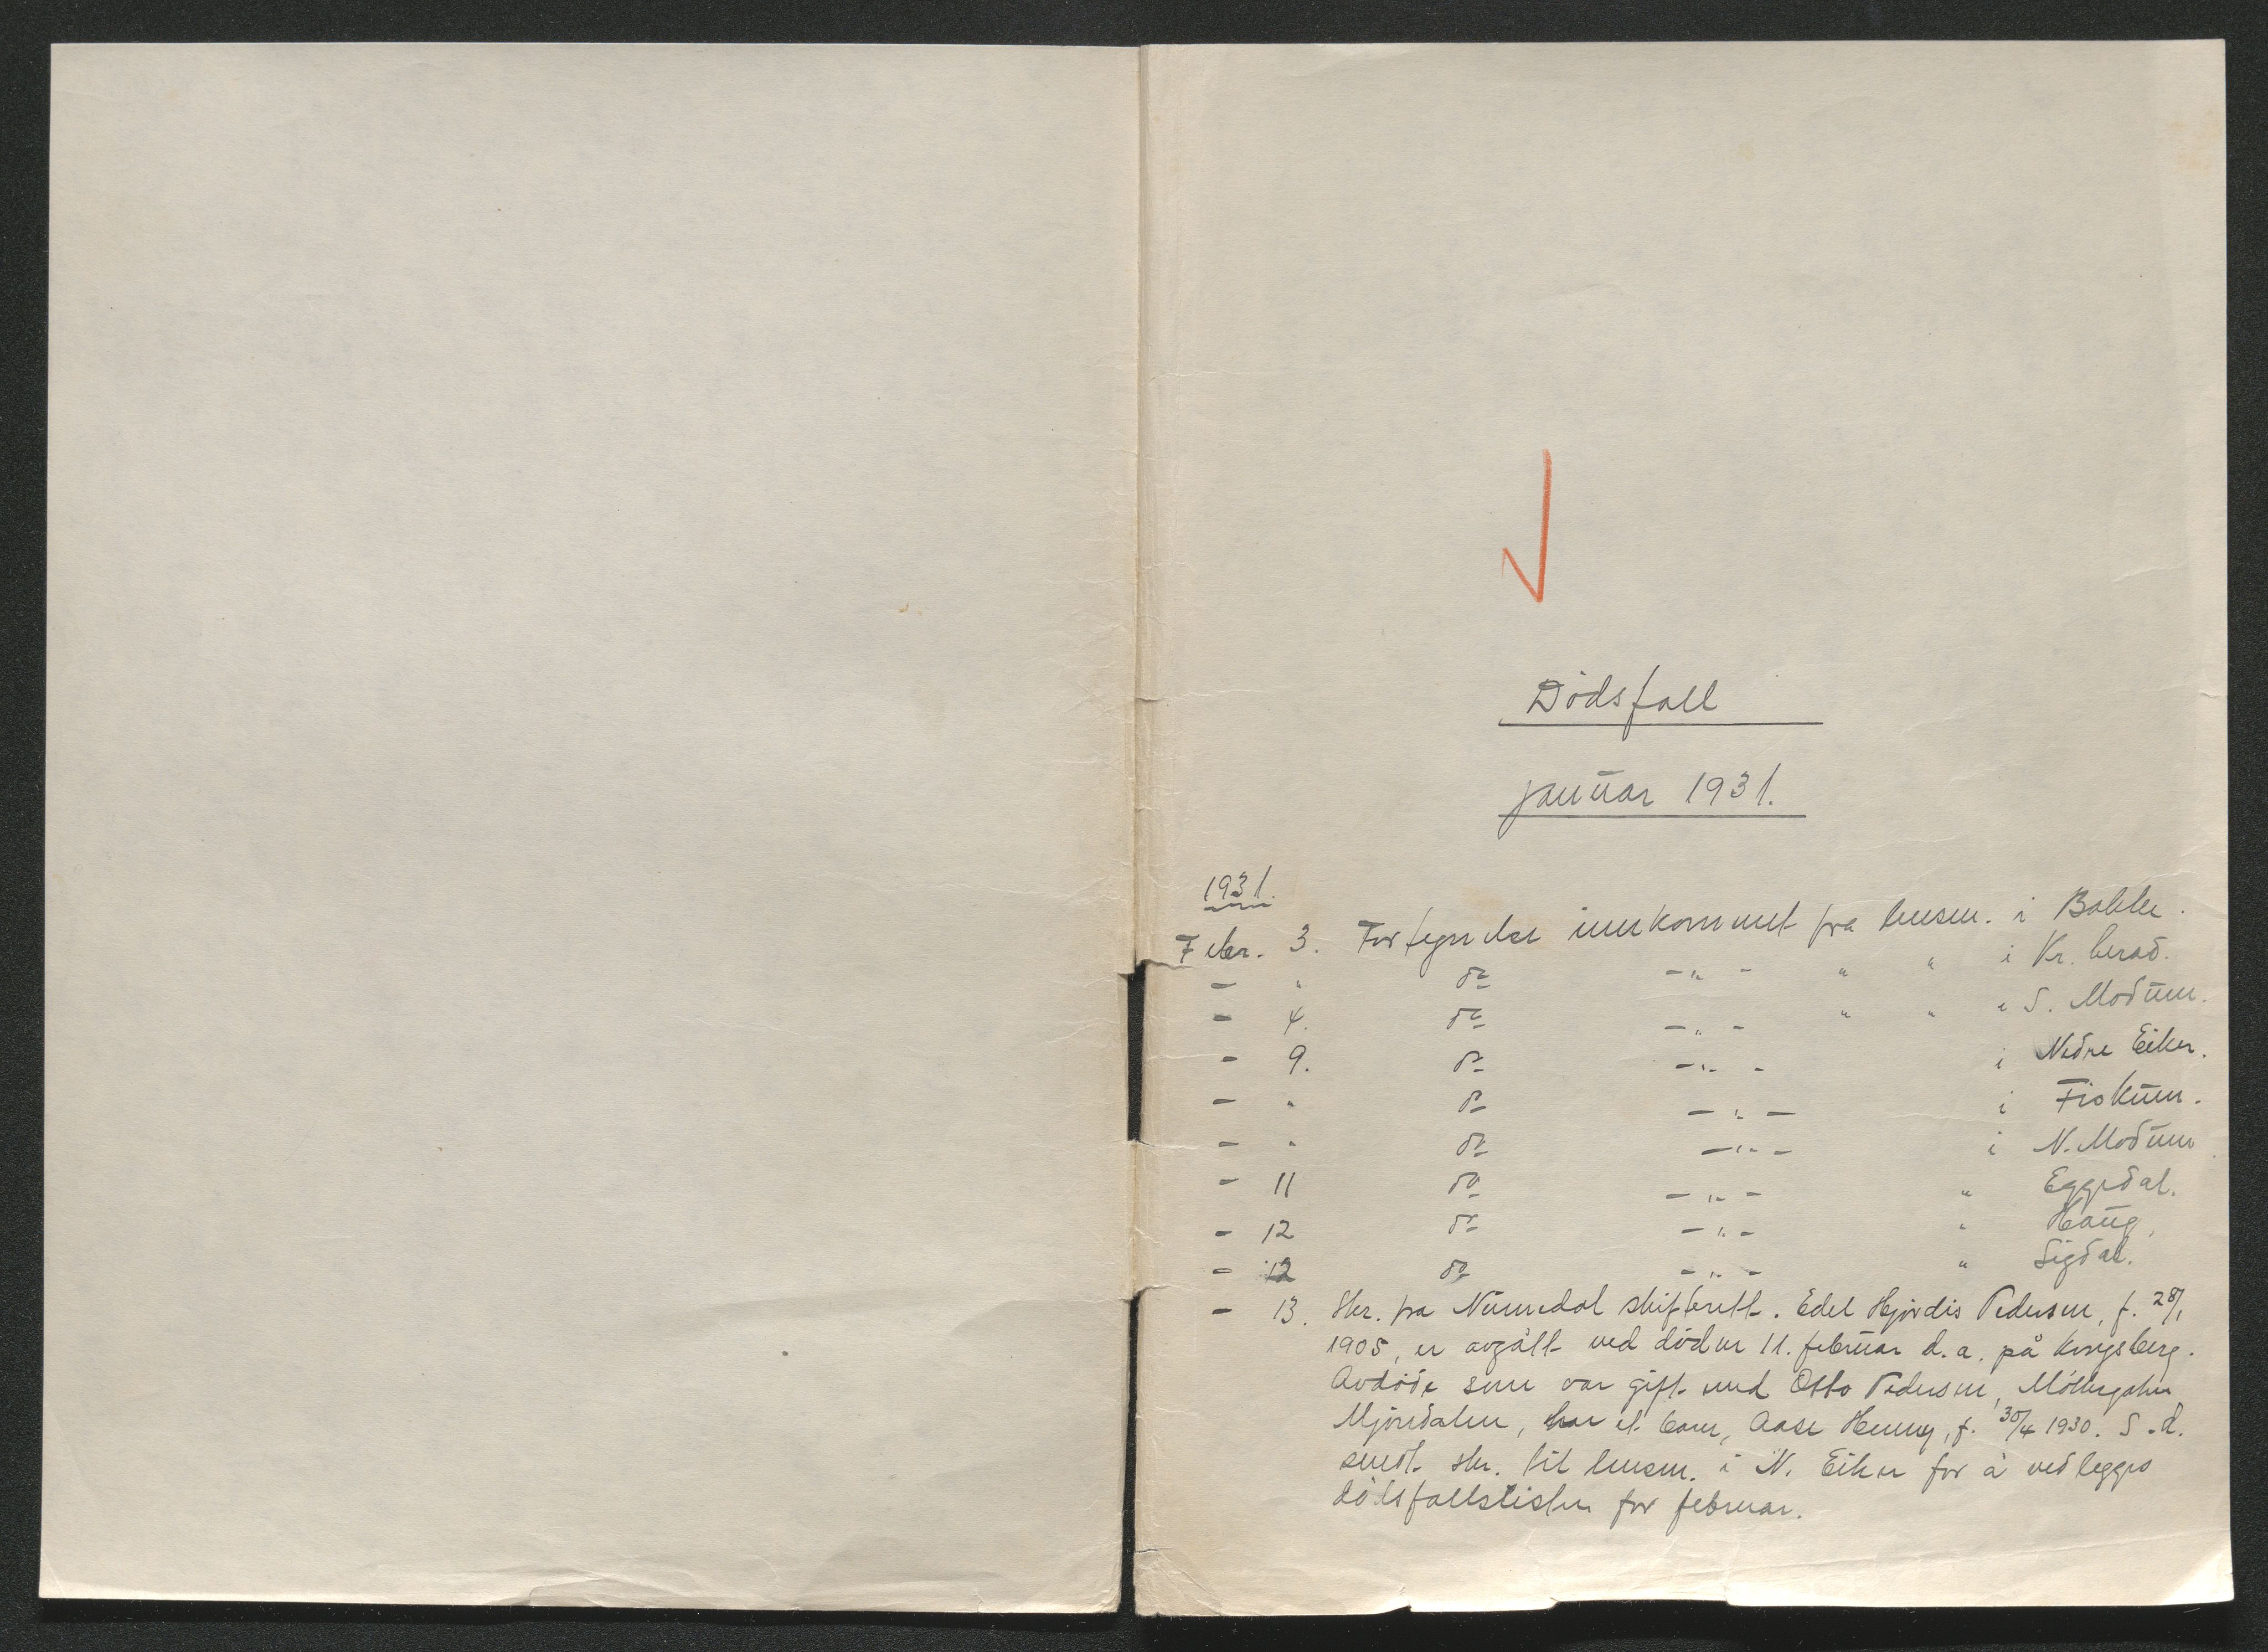 Dödsfall
januar 1931.
1931.
Febr. 3. Fortegnelse innkommet fra lensm. i Bakke.
- " do - " - " " i Kr. herad.
- 4. do - " - " " i S. Modum.
- 9. do - " - i Nedre Eiker.
- " do - " - i Fiskum.
- " do - " - i N. Modum
- 11 do - " - " Eggedal.
- 12 do - " - " Haug,
- 12 do - " - " Sigdal.
- 13. Skr. fra Numedal skifterett. Edel Hjördis Pedersen, f. 28/1
1905, er avgått ved döden 11. februar d.a. på Kongsberg.
Avdöde som var gift med Otto Pedersen, Möllegaten
Mjöndalen, har et barn, Aase Henny, f. 30/4 1930. S.d.
sendt skr. til lensm. i N. Eiker for å vedlegges
dödsfallslisten for februar.